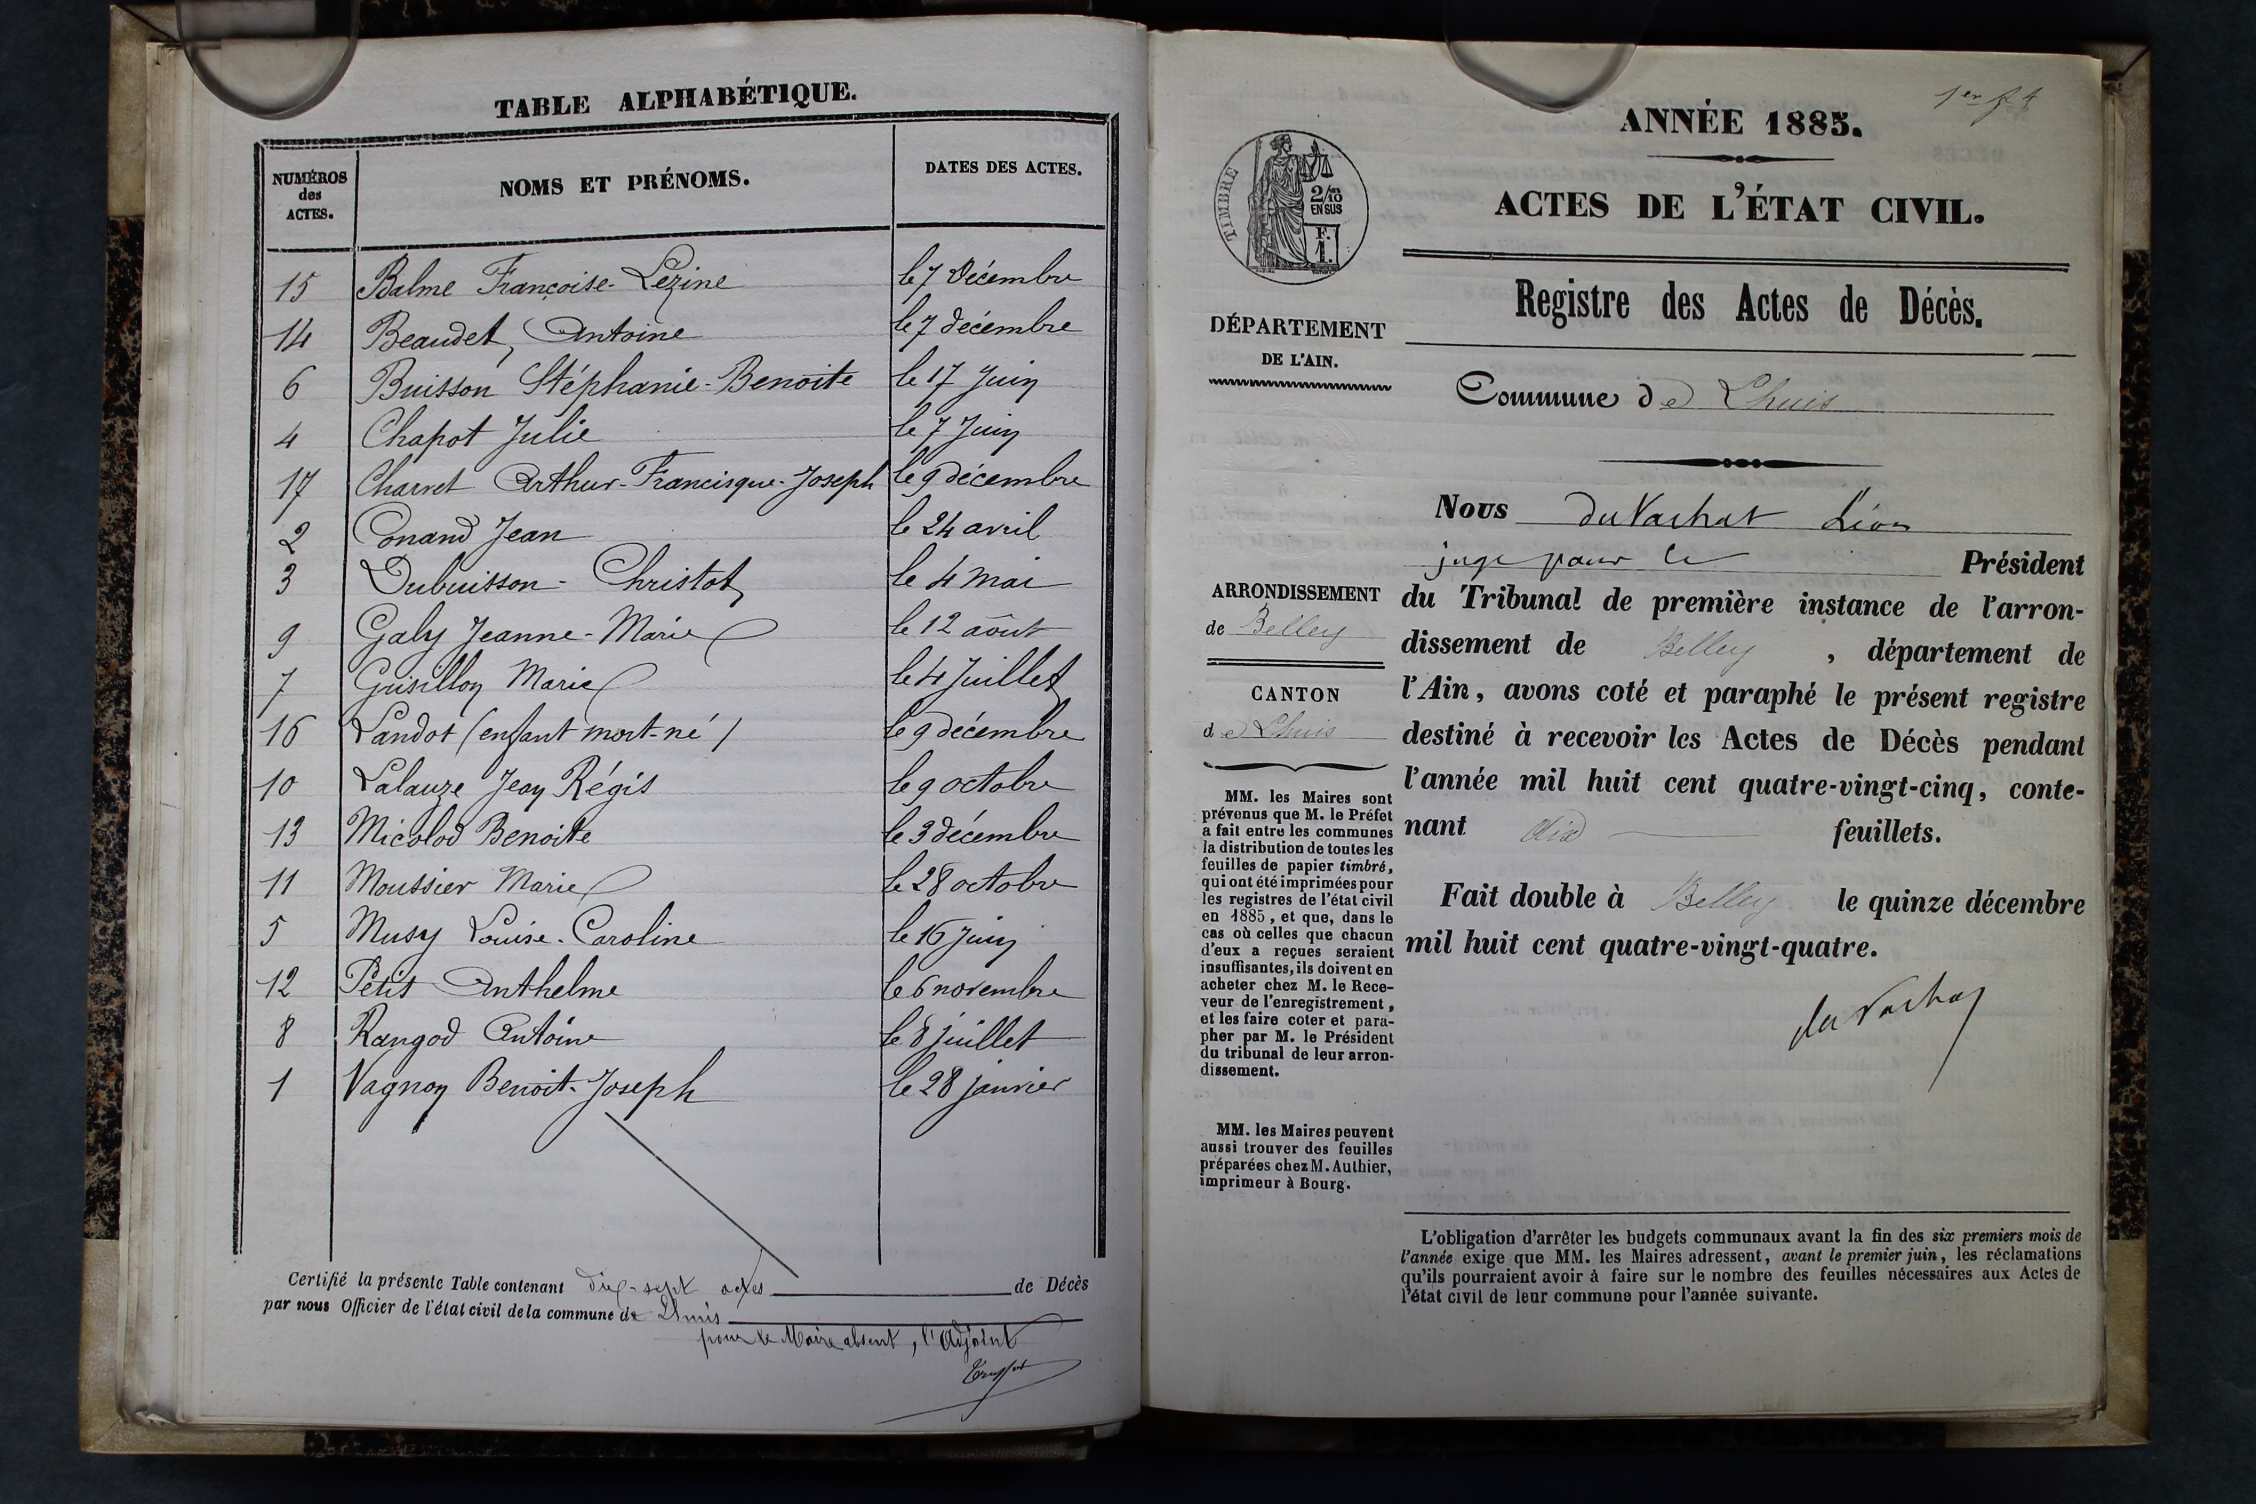 TABLE ALPHABÉTIQUE.
NUMÉROS des ACTES. NOMS ET PRÉNOMS. DATES DES ACTES.
15 Balme Françoise-Lézine le 7 Décembre
14 Beaudet, Antoine le 7 décembre
6 Buisson Stéphanie-Benoite le 17 Juin
4 Chapot Julie le 7 Juin
17 Charvet Arthur-Francisque-Joseph le 9 décembre
2 Conand Jean le 24 avril
3 Dubuisson-Christot le 4 mai
9 Galy Jeanne-Marie le 12 août
7 Guisillon Marie le 4 Juillet
16 Landot (enfant mort-né) le 9 décembre
10 Lalauze Jean Régis le 9 octobre
13 Micolod Benoite le 3 décembre
11 Moussier Marie le 28 octobre
5 Musy Louise-Caroline le 16 juin
12 Petit Anthelme le 6 novembre
8 Rangod Antoine le 8 juillet
1 Vagnon Benoit-Joseph le 28 janvier
Certifié la présente Table contenant dix-sept actes de Décès
par nous Officier de l'état civil de la commune de Lhuis
pour le Maire absent, l'Adjoint
1er f.t
ANNÉE 1885.
TIMBRE
2/10 EN SUS
F. 1.
ACTES DE L'ÉTAT CIVIL.
Registre des Actes de Décès.
DÉPARTEMENT
DE L'AIN.
Commune de Lhuis
ARRONDISSEMENT
de Belley
CANTON
de Lhuis
MM. les Maires sont
prévenus que M. le Préfet
a fait entre les communes
la distribution de toutes les
feuilles de papier timbré,
qui ont été imprimées pour
les registres de l'état civil
en 1885, et que, dans le
cas où celles que chacun
d'eux a reçues seraient
insuffisantes, ils doivent en
acheter chez M. le Rece-
veur de l'enregistrement,
et les faire coter et para-
pher par M. le Président
du tribunal de leur arron-
dissement.
MM. les Maires peuvent
aussi trouver des feuilles
préparées chez M. Authier,
imprimeur à Bourg.
Nous du Vachat Léon
juge pour le Président
du Tribunal de première instance de l'arron-
dissement de Belley, département de
l'Ain, avons coté et paraphé le présent registre
destiné à recevoir les Actes de Décès pendant
l'année mil huit cent quatre-vingt-cinq, conte-
nant dix feuillets.
Fait double à Belley le quinze décembre
mil huit cent quatre-vingt-quatre.
du Vachat
L'obligation d'arrêter les budgets communaux avant la fin des six premiers mois de
l'année exige que MM. les Maires adressent, avant le premier juin, les réclamations
qu'ils pourraient avoir à faire sur le nombre des feuilles nécessaires aux Actes de
l'état civil de leur commune pour l'année suivante.